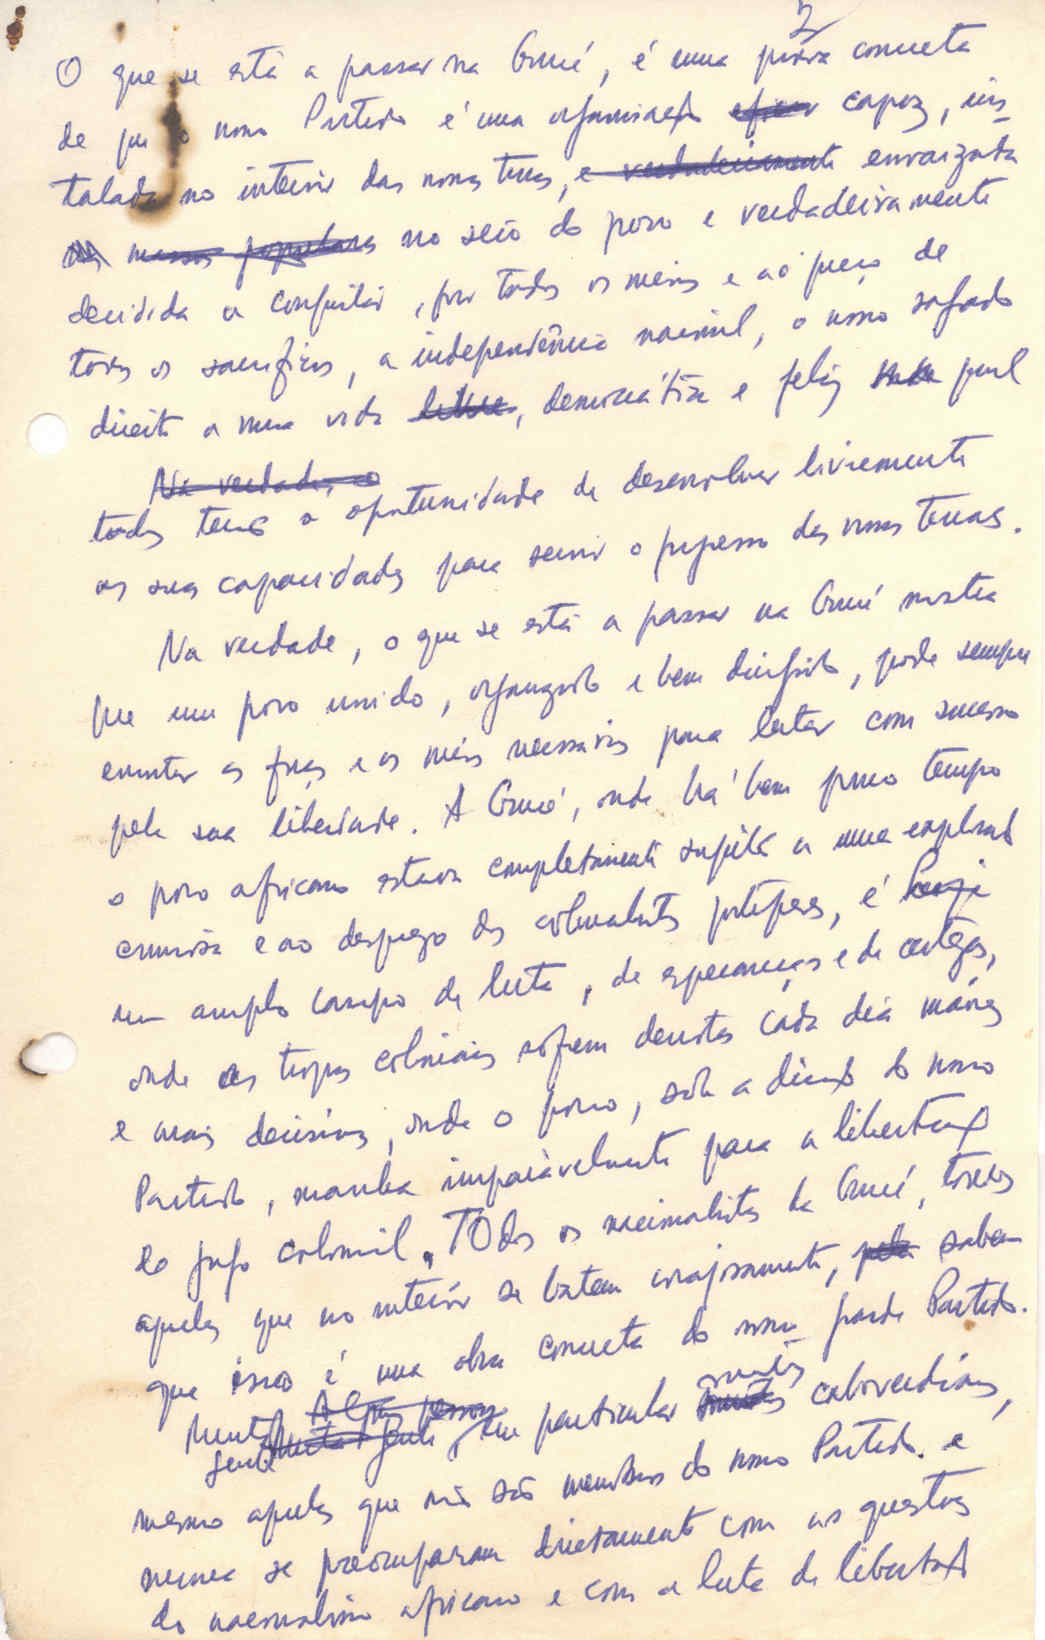 2
O que se está a passar na Guiné, é uma prova concreta
de que o nosso Partido é uma organização eficaz capaz, ins-
talada no interior das nossas terras, e verdadeiramente enraizada
nas massas populares no seio do povo e verdadeiramente
decidida a conquistar, por todos os meios e ao preço de
todos os sacrifícios, a independência nacional, o nosso sagrado
direito a uma vida livre, democrática e feliz na qual
Na verdade, o
todos tenhamos a oportunidade de desenvolver livremente
as suas capacidades para servir o progresso das nossas terras.
Na verdade, o que se está a passar na Guiné mostra
que um povo unido, organizado e bem dirigido, pode sempre
encontrar as forças e os meios necessários para lutar com sucesso
pela sua liberdade. A Guiné, onde há bem pouco tempo
o povo africano estava completamente sujeito a uma exploração
criminosa e ao desprezo dos colonialistas portugueses, é hoje
um amplo campo de luta, de esperanças e de certezas,
onde as tropas coloniais sofrem derrotas cada dia maiores
e mais decisivas, onde o povo, sob a direcção do nosso
Partido, marcha imparavelmente para a libertação
do jugo colonial. TOdos os nacionalistas da Guiné, todos
aqueles que no interior se batem corajosamente, sabem
que isso é uma obra concreta do nosso grande Partido.
Muita Algumas pessoas muitos
gente Muita gente, em particular muitos caboverdianos,
mesmo aqueles que não são membros do nosso Partido e
nunca se preocuparam directamente com as questões
do nacionalismo africano e com a luta de libertação